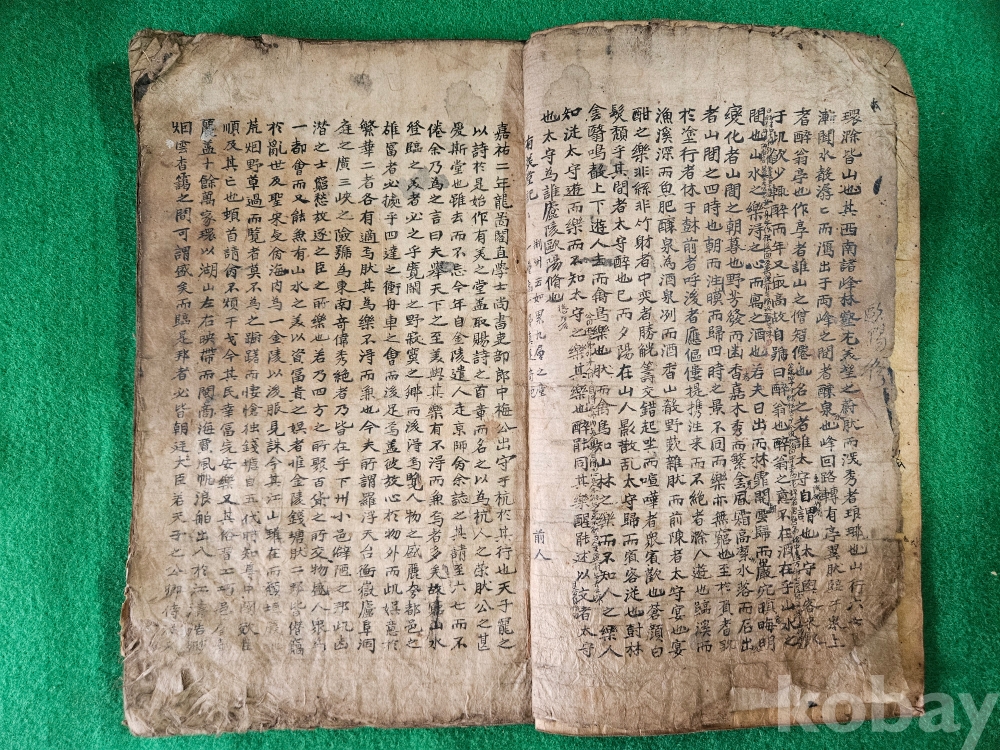 歐陽脩
環滁皆山也其西南諸峰林壑尤美望之蔚然而深秀者琅琊也山行六七
漸聞水聲潺〻而瀉出于兩峰之間者釀泉也峰回路轉有亭翼然臨于泉上
者醉翁亭也作亭者誰山之僧智僊也名之者誰太守自謂也太守與客來飮
于此飮少輒醉而年又最高故自號曰醉翁也醉翁之意不在酒在乎山水之
間也山水之樂淂之心而寓之酒也若夫日出而林霏開雲歸而巖穴暝晦明
變化者山間之朝暮也野芳發而幽香嘉木秀而繁陰風霜高潔水落而石出
者山間之四時也朝而往暮而歸四時之景不同而樂亦無窮也至於負者歌
於塗行者休于樹前者呼後者應傴僂提携往來而不絶者滁人遊也臨溪而
漁溪深而魚肥釀泉爲酒泉冽而酒香山肴野蔌雜然而前陳者太守宴也宴
酣之樂非絲非竹射者中奕者勝觥籌交錯起坐而喧嘩者衆賓歡也蒼顔白
髮頹乎其間者太守醉也已而夕陽在山人影散乱太守歸而賓客從也樹林
陰翳鳴聲上下遊人去而禽鳥樂也然而禽鳥知山林之樂而不知人之樂人
知從太守遊而樂而不知太守之樂其樂也醉能同其樂醒能述以文者太守
也太守爲誰廬陵歐陽脩也
有美堂記 前人
嘉祐二年龍圖閣直學士尚書吏部郎中梅公出守于杭於其行也天子寵之
以詩於是始作有美之堂盖取賜詩之首章而名之以爲杭人之榮然公之甚
愛斯堂也雖去而不忘今年自金陵遣人走京師命余誌之其請至六七而不
倦余乃爲之言曰夫擧天下之至美與其樂有不淂而兼焉者多矣故窮山水
登臨之美者必之乎寬閒之野寂寞之鄉而後淂焉覽人物之盛麗夸都邑之
雄富者必據乎四達之衝舟車之會而後足焉盖彼放心於物外而此娛意於
繁華二者各有適焉然其爲樂不淂而兼也今夫所謂羅浮天台衡嶽廬阜洞
庭之廣三峽之險號爲東南奇偉秀絶者乃皆在乎下州小邑僻陋之邦此幽
潜之士窮愁放逐之臣之所樂也若乃四方之所聚百貨之所交物盛人衆爲
一都會而又能兼有山水之美以資富貴之娛者惟金陵錢塘然二邦皆僭竊
於亂世及聖宋受命海內爲一金陵以後服見誅今其江山雖在而頹垣
荒烟野草過而覽者莫不爲之躊躇而悽愴独錢塘自五代時知尊中國效臣
順及其亡也頓首請命不煩干戈今其民幸富完安樂又其俗習工巧邑
麗盖十餘萬家環以湖山左右映帶而閩商海賈風帆浪舶出入於江濤浩渺
烟雲杳靄之間可謂盛矣而臨是邦者必皆朝廷大臣若天子之公卿侍從
kobay